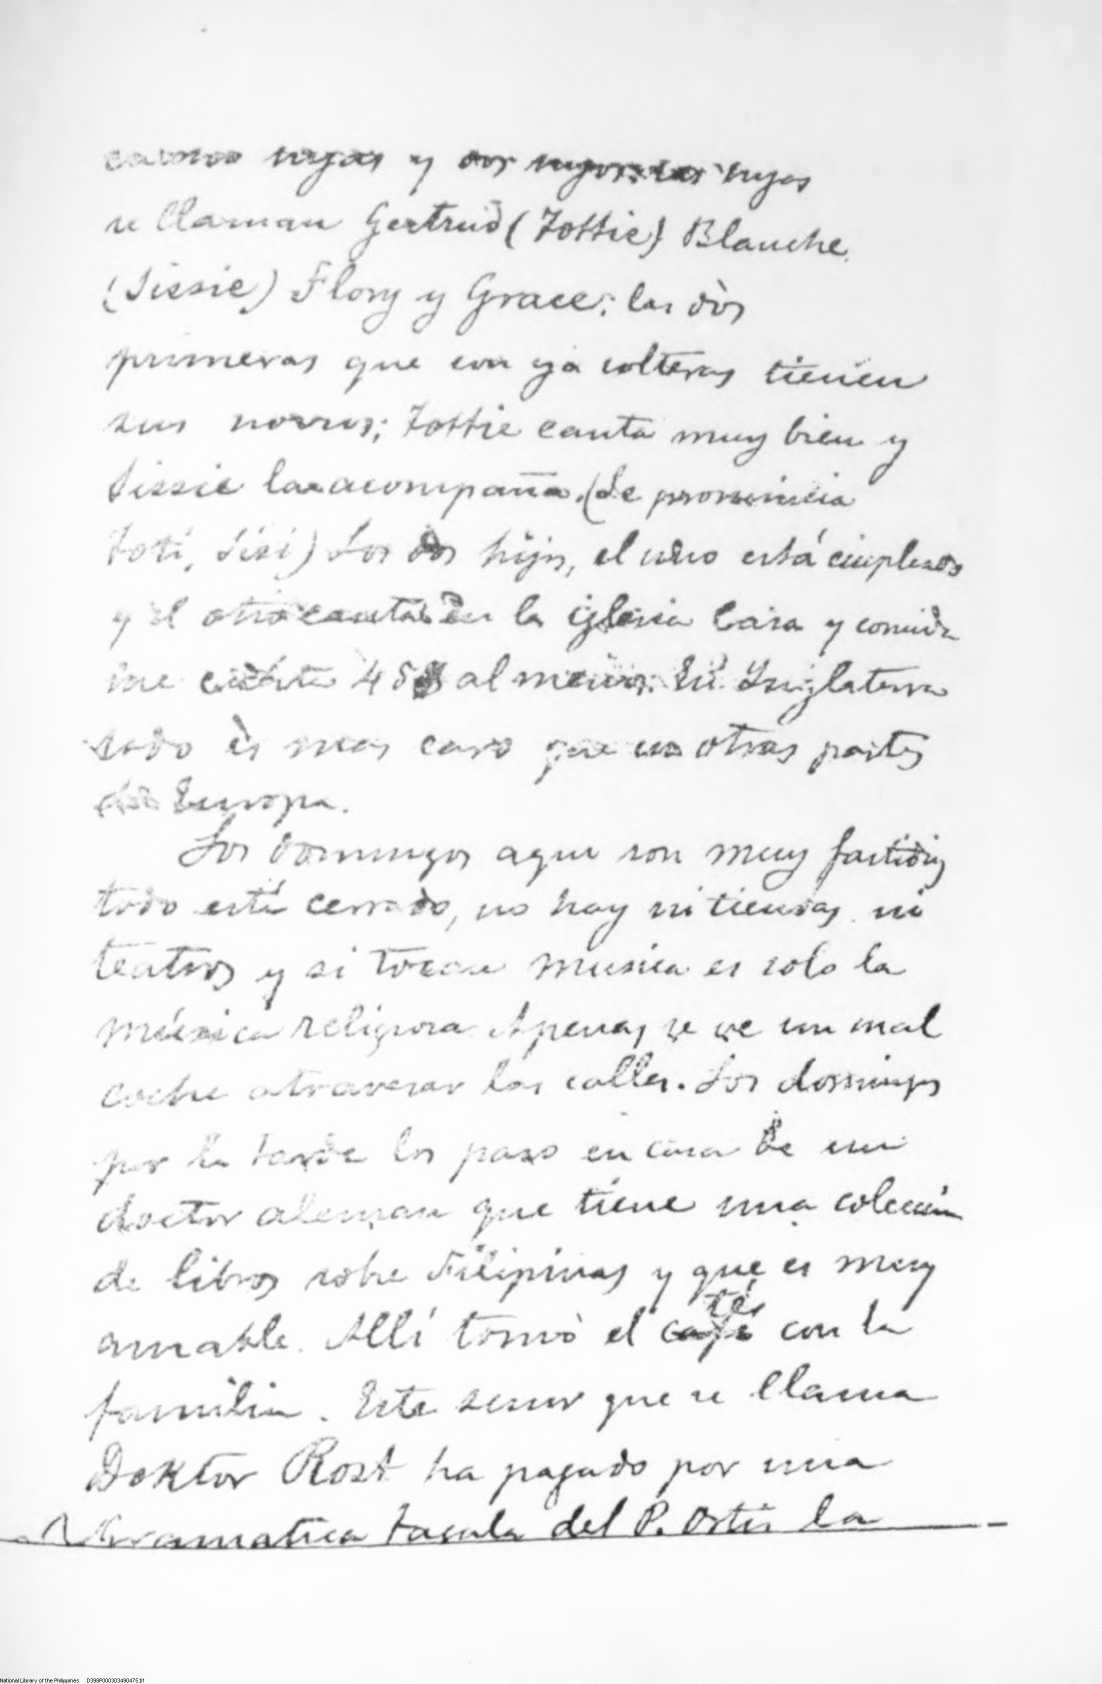 cuatro hijas y dos hijos: las hijas
se llaman Gertrud (Tottie) Blanche
(Sissie) Flory y Grace; las dos
primeras que son ya solteras tienen
sus novios; Tottie canta muy bien y
Sissie la acompaña. (Se pronuncia
Toti, Sisi) Los dos hijos, el uno está empleado
y el otro canta en la iglesia Casa y comida
me cuesta 45 al mes. En Inglaterra
todo es mas caro que en otras partes
de Europa.
Los domingos aqui son muy fastidios
todo está cerrado, no hay ni tiendas ni
teatros y si tocan musica es solo la
música religiosa. Apenas se ve un mal
coche atravesar las calles. Los domingos
por la tarde los paso en casa de un
doctor aleman que tiene una coleccion
de libros sobre Filipinas y que es muy
amable. Allí tomo el café tés con la
familia. Este señor que se llama
Doktor Rost ha pagado por una
Gramatica tagala del P. Ortis la
National Library of the Philippines